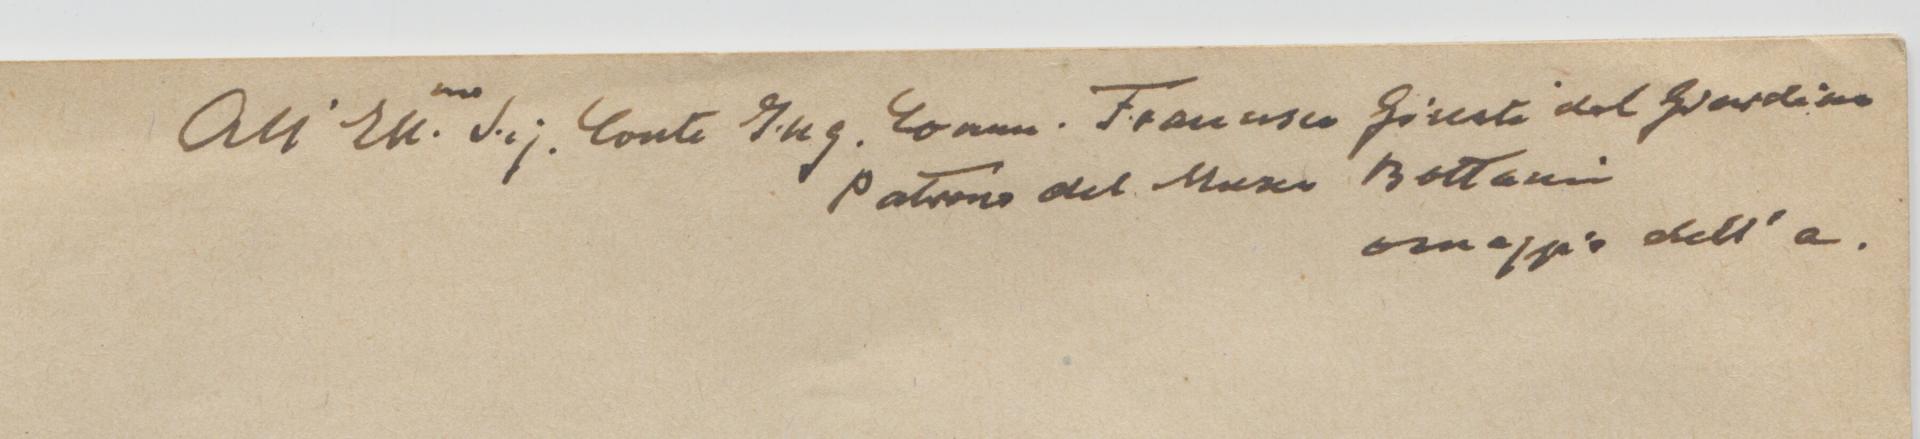 All' Ill.mo Sig. Conte Ing. Comm. Francesco Giusti del Giardino
Patrono del Museo Bottacin
omaggio dell' a.